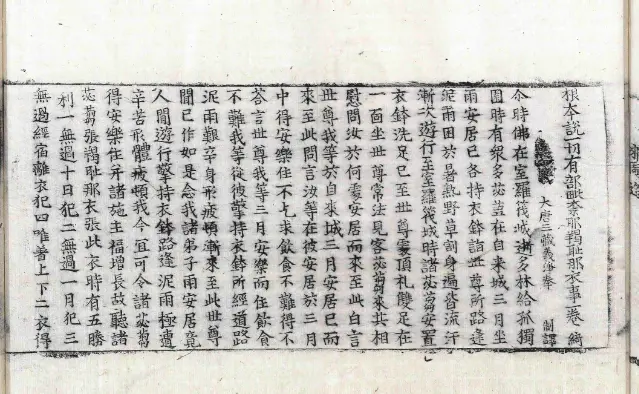 根本說一切有部毗奈耶羯恥那衣事一卷 綺
大唐三藏義淨奉 制譯
尒時佛在室羅筏城逝多林給孤獨
園時有衆多苾芻在自來城三月坐
雨安居已各持衣鉢詣世尊所路逢
泥雨困於暑熱野草割身遍皆流汗
漸次遊行至室羅筏城時諸苾芻安置
衣鉢洗足已至世尊處頂礼雙足在
一面坐世尊常法見客苾芻來共相
慰問汝於何處安居而來至此白言
世尊我等於自來城三月安居已而
來至此問言汝等在彼安居於三月
中得安樂住不乞求飲食不難得不
荅言世尊我等三月安樂而住飲食
不難我等從彼擎持衣鉢所經道路
泥雨艱辛身形疲頓漸來至此世尊
聞已作如是念我諸弟子雨安居竟
人間遊行擎持衣鉢路逢泥雨極遭
辛苦形體疲頓我今宜可令諸苾芻
得安樂住幷諸施主福增長故聽諸
苾芻張羯恥那衣張此衣時有五勝
利一無過十日犯二無過一月犯三
無過經宿離衣犯四唯著上下二衣得